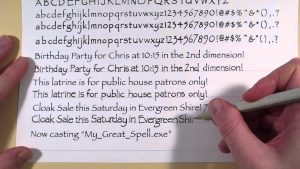 ABCDEFGHIJKLMNOPQRSTUVWXYZ
abcdefghijklmnopqrstuvwxyz1234567890!@#$%^&*(),.?
abcdefghijklmnopqrstuvwxyz1234567890!@#$%^&*(),.?
abcdefghijklmnopqrstuvwxyz1234567890!@#$%^&*(),.?
Birthday Party for Chris at 10:15 in the 2nd dimension!
Birthday Party for Chris at 10:15 in the 2nd dimension!
This latrine is for public house patrons only!
This latrine is for public house patrons only!
Cloak Sale this Saturday in Evergreen Shire!
Cloak Sale this Saturday in Evergreen Shi
Now casting "My_Great_Spell.exe"